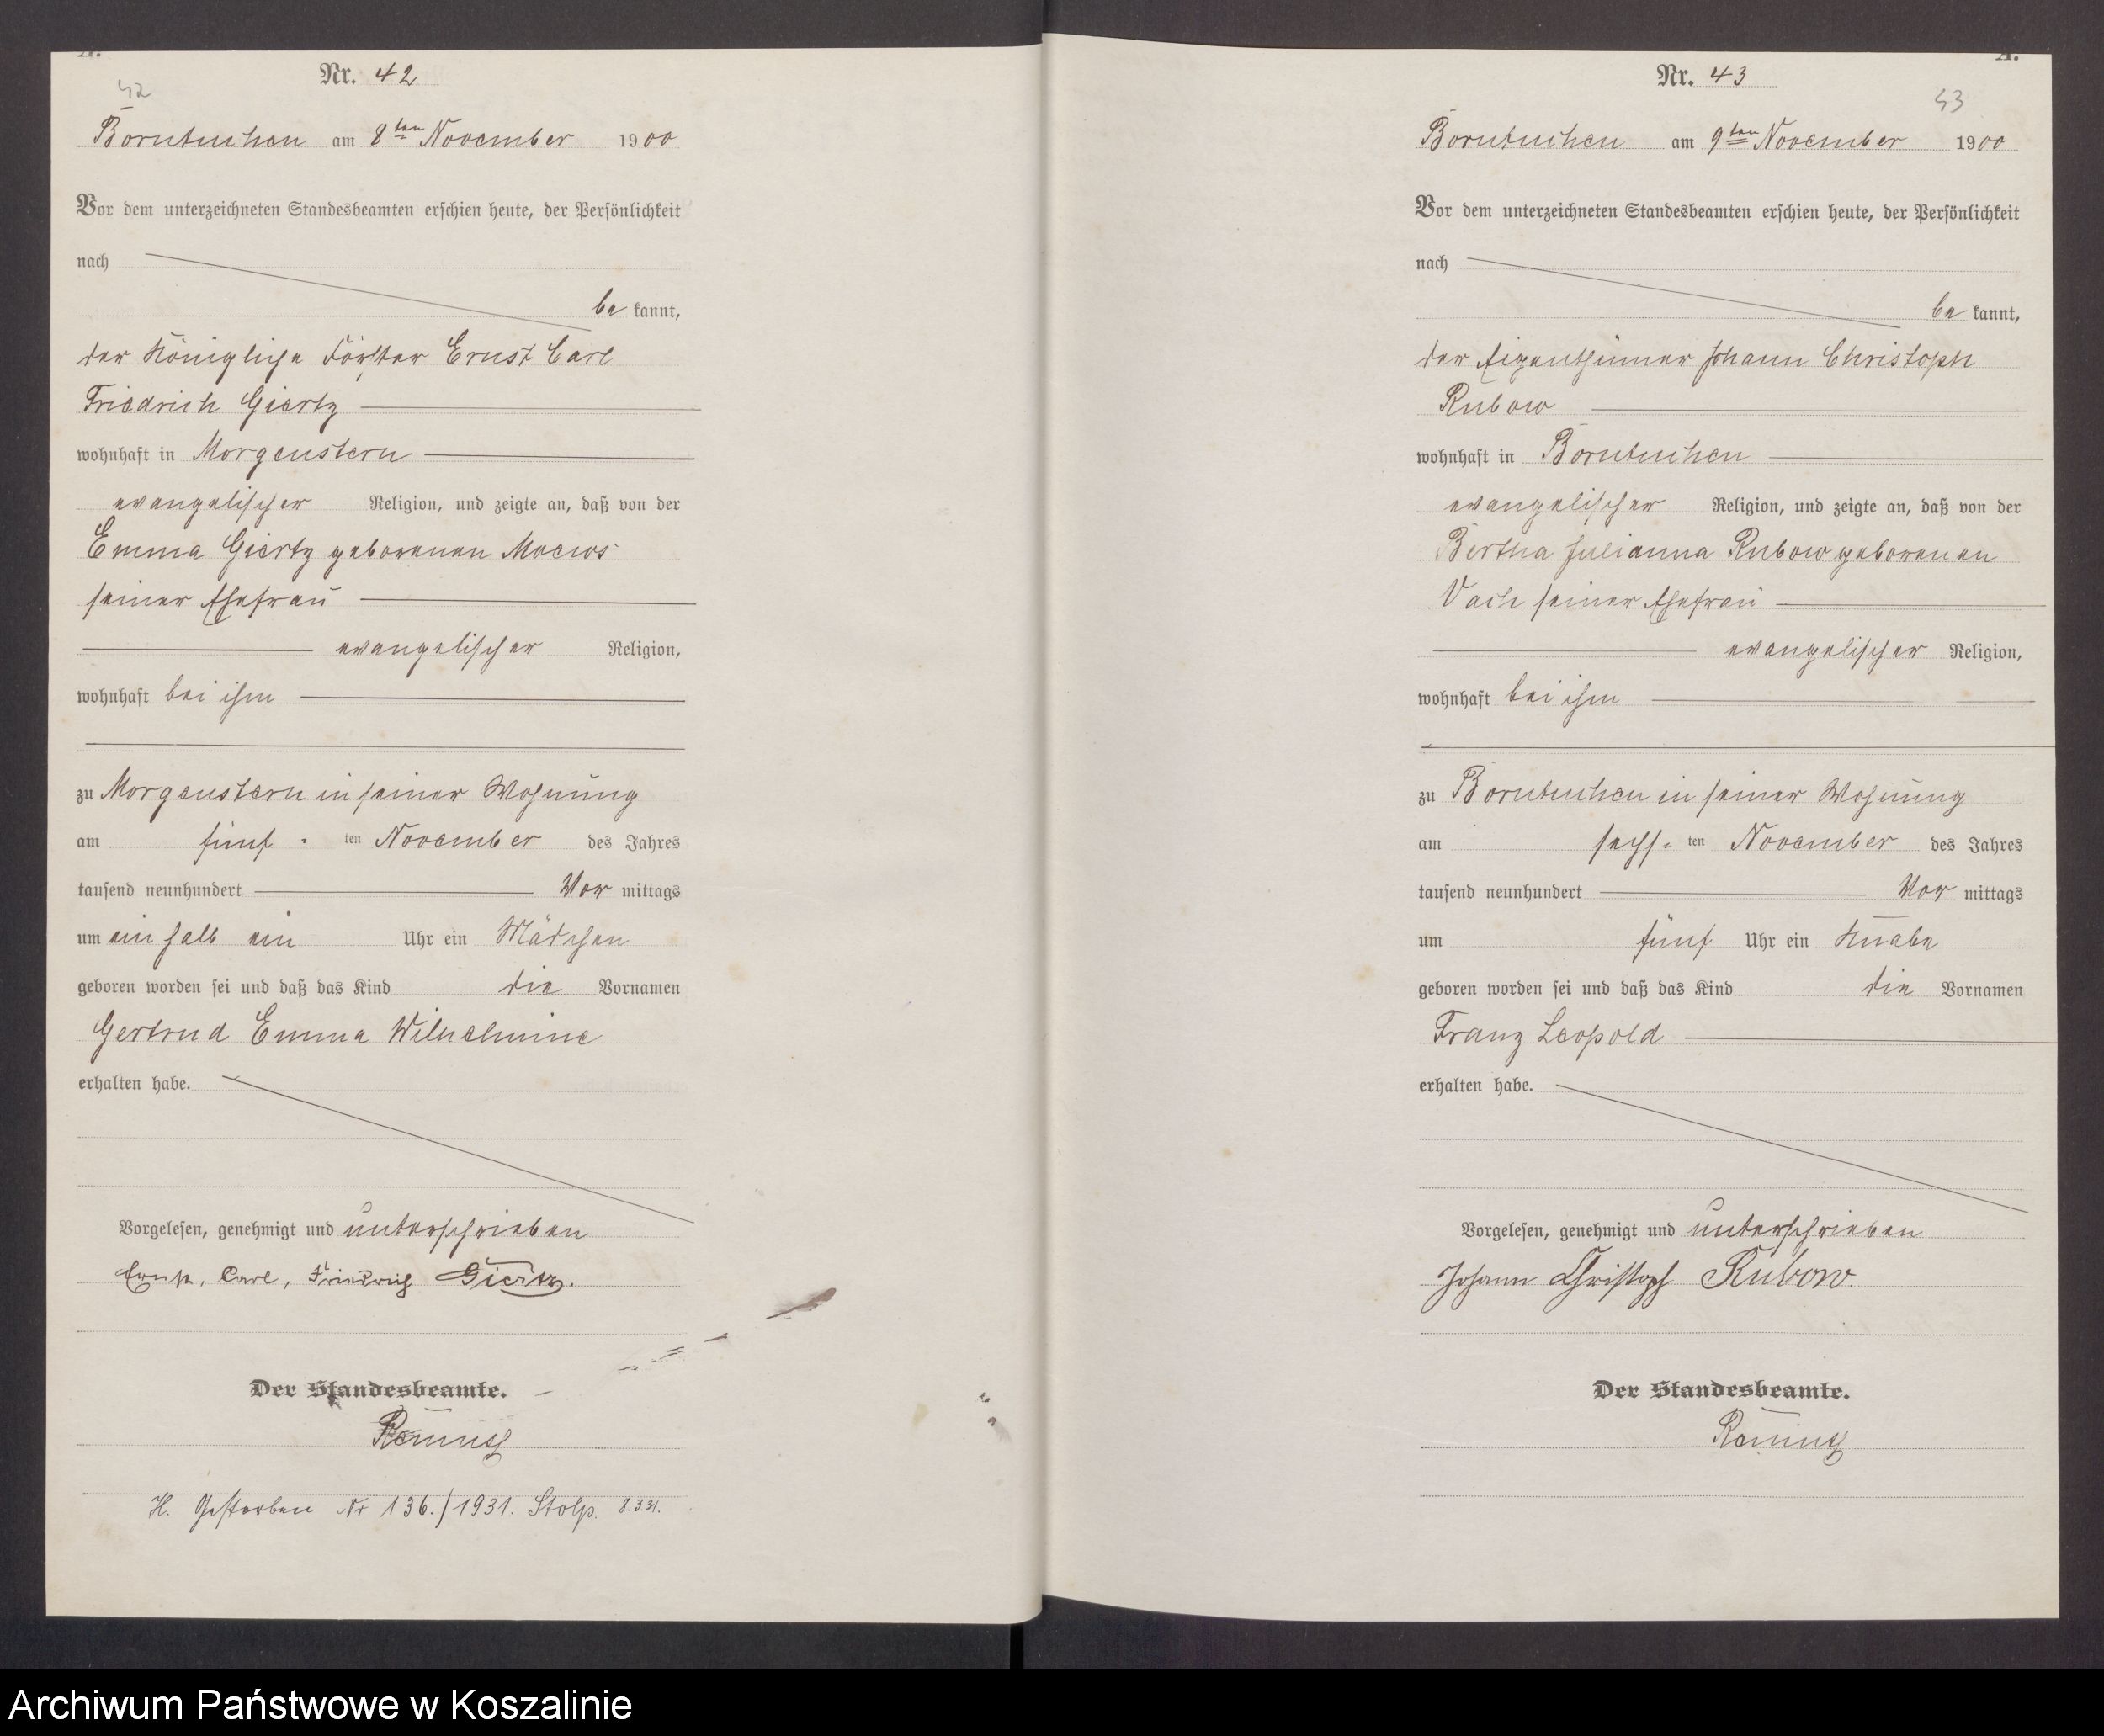 A.
Nr. 42
42
Borntuchen am 8ten November 1900
Vor dem unterzeichneten Standesbeamten erschien heute, der Persönlichkeit
nach
be kannt,
der Königliche Förster Ernst Carl
Friedrich Giertz
wohnhaft in Morgenstern
evangelischer Religion, und zeigte an, daß von der
Emma Giertz geborenen
seiner Ehefrau
evangelischer Religion,
wohnhaft bei ihm
zu Morgenstern in seiner Wohnung
am fünf ten November des Jahres
tausend neunhundert Vor mittags
um ein halb ein Uhr ein Mädchen
geboren worden sei und daß das Kind die Vornamen
Gertrud Emma Wilhelmine
erhalten habe.
Vorgelesen, genehmigt und unterschrieben
Ernst, Carl, Friedrich Giertz.
Der Standesbeamte.
H. Gestorben Nr 136./1931. Stolp. 8.3.31.
A.
Nr. 43
43
Borntuchen am 9ten November 1900
Vor dem unterzeichneten Standesbeamten erschien heute, der Persönlichkeit
nach
be kannt,
der Eigenthümer Johann Christoph
Rubow
wohnhaft in Borntuchen
evangelischer Religion, und zeigte an, daß von der
Bertha Julianna Rubow geborenen
Vach seiner Ehefrau
evangelischer Religion,
wohnhaft bei ihm
zu Borntuchen in seiner Wohnung
am sechs- ten November des Jahres
tausend neunhundert Vor mittags
um fünf Uhr ein Knabe
geboren worden sei und daß das Kind die Vornamen
Franz Leopold
erhalten habe.
Vorgelesen, genehmigt und unterschrieben
Johann Christoph Rubow.
Der Standesbeamte.
Archiwum Państwowe w Koszalinie